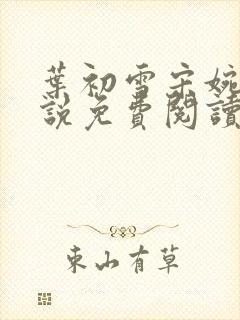 葉初雪宋婉
說免費閱讀
東山有草